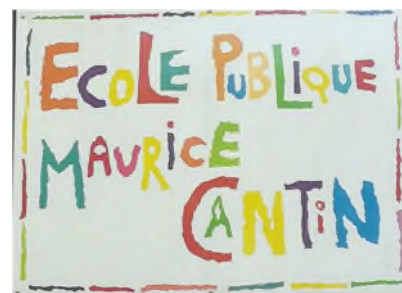 ECOLE PUBLIQUE
MAURICE
CANTIN